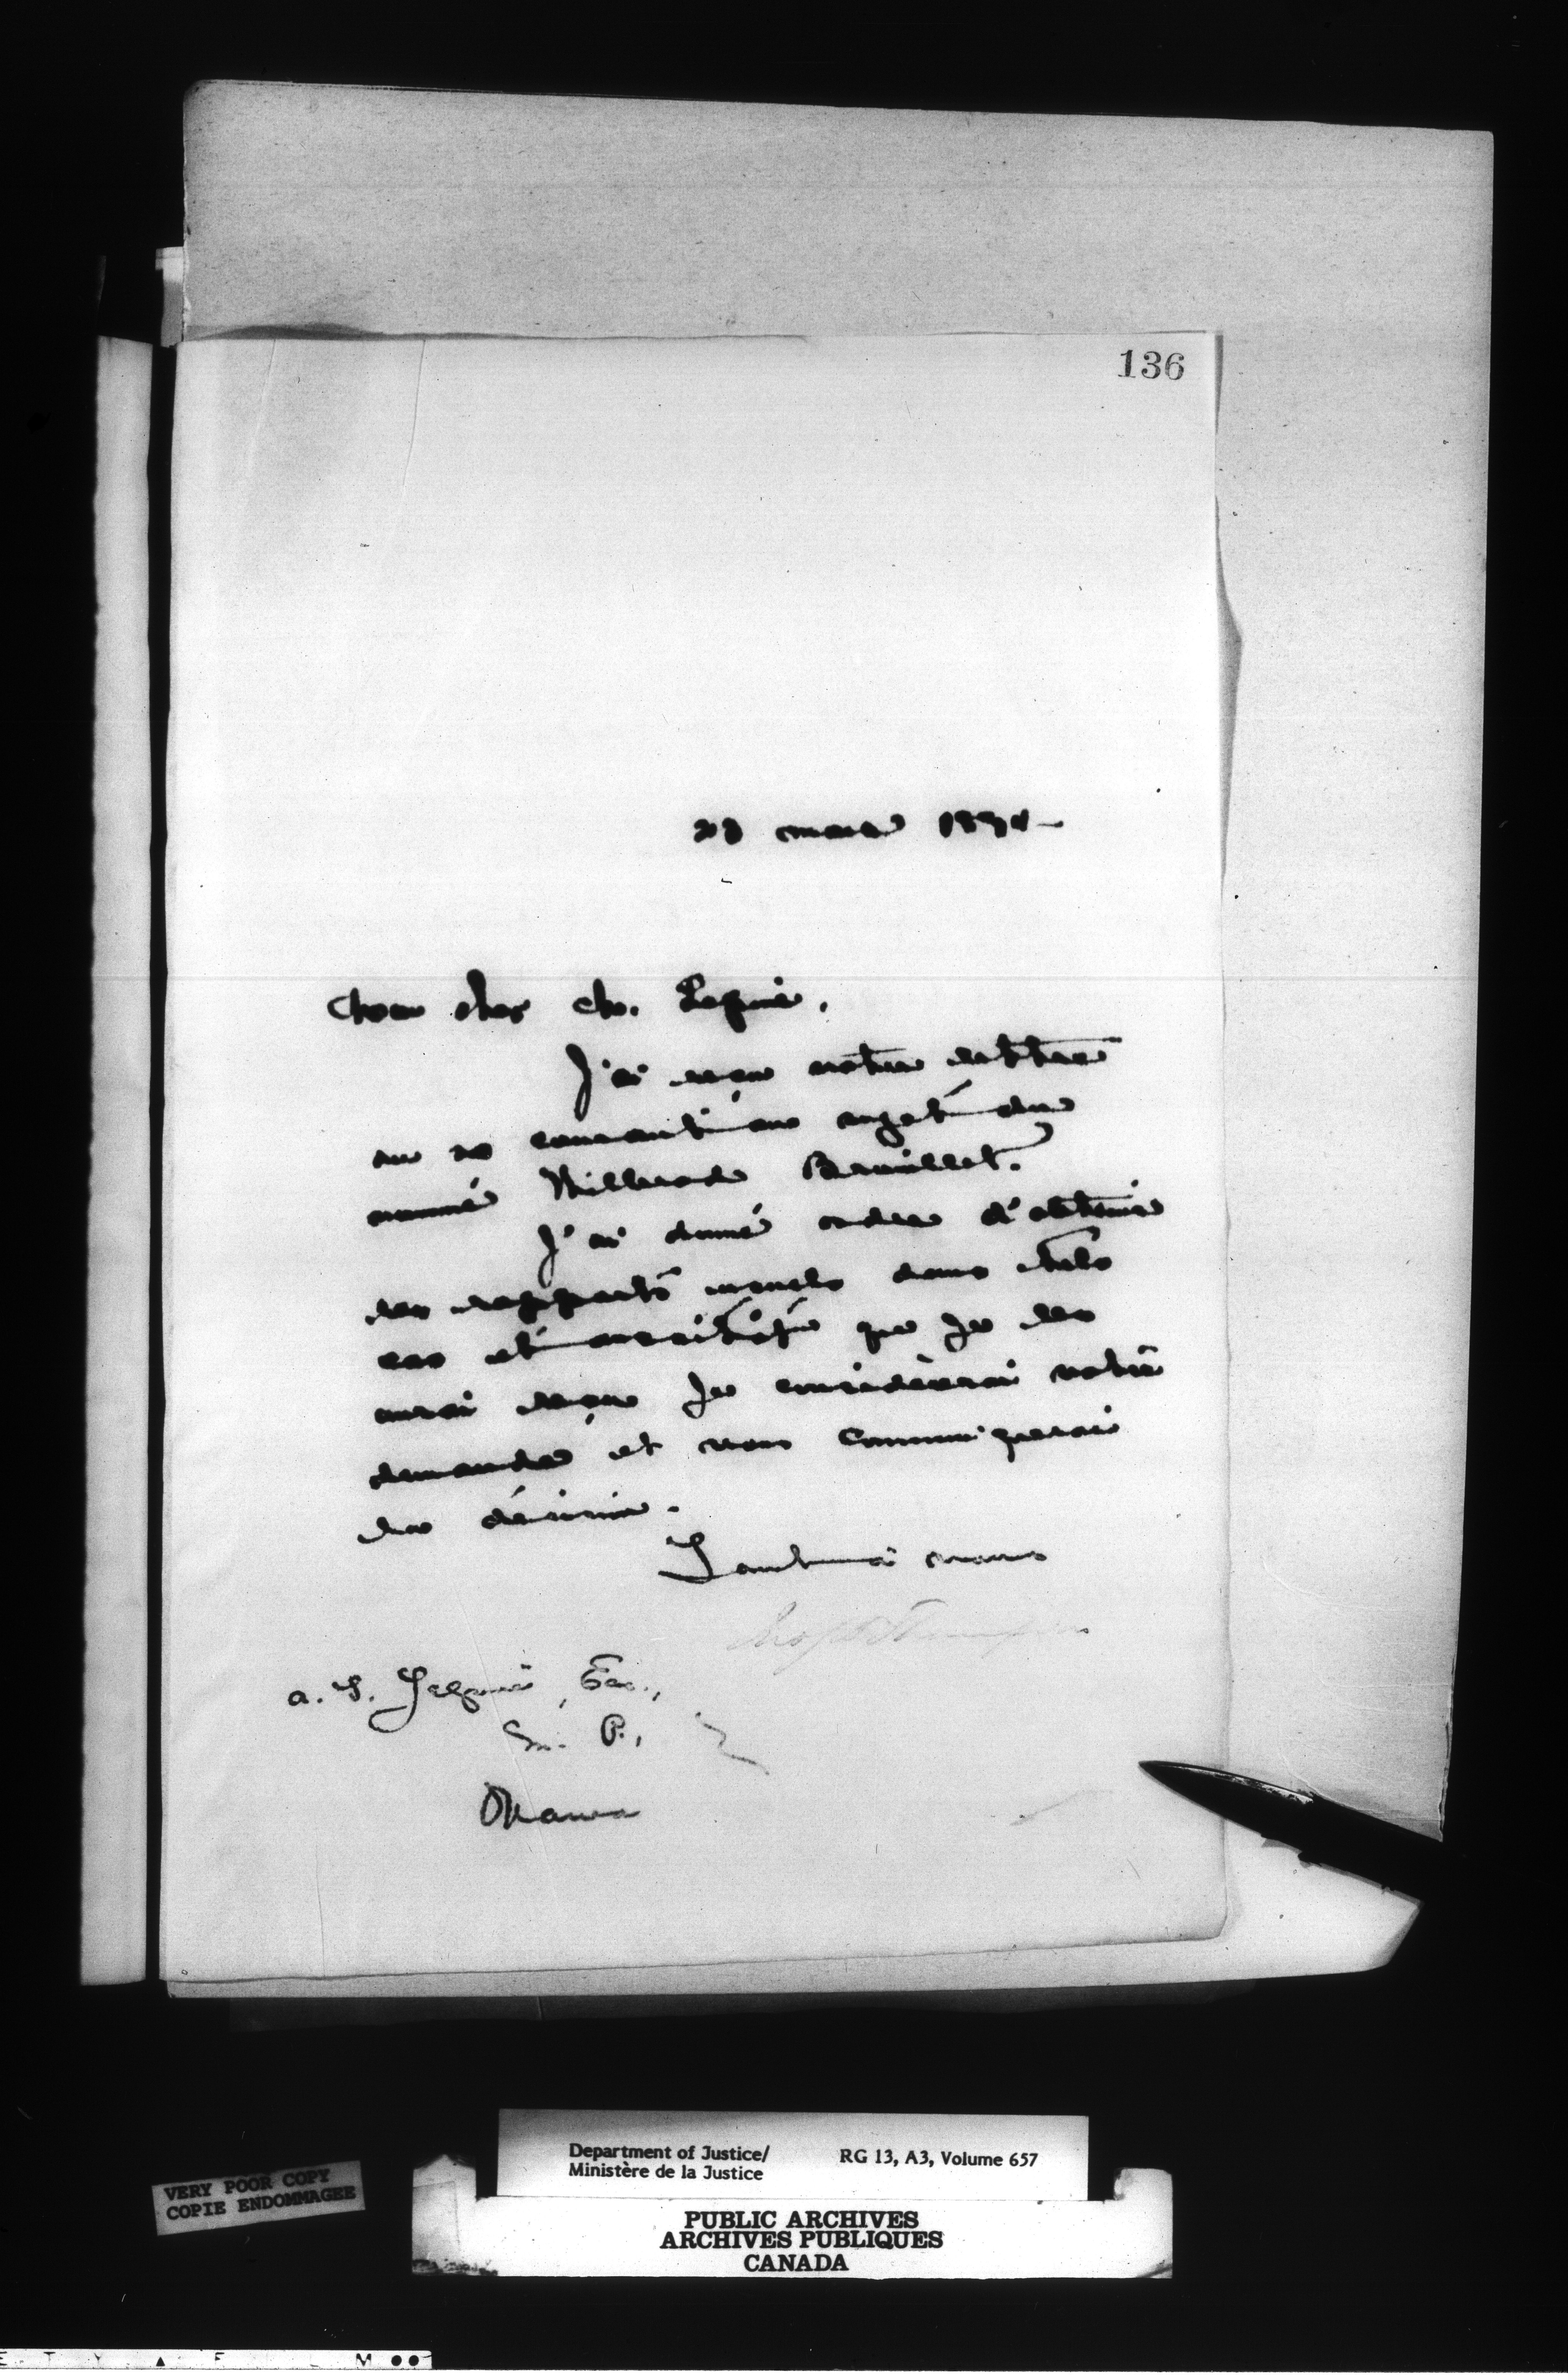 136
mars
Mon cher M. Lépine,
J'ai reçu votre lettre
du 20 courant au sujet du
nommé Brouillet.
J'ai donné ordre d'obtenir
les rapports usuels dans tels
cas et aussitôt que je les
aurai reçu je considèrerai votre
demande et vous communiquerai
la décision.
Tout à vous
A. T. Lépine, Esc.,
M. P.,
Ottawa
Department of Justice/
Ministère de la Justice
RG 13, A3, Volume 657
VERY POOR COPY
COPIE ENDOMMAGEE
PUBLIC ARCHIVES
ARCHIVES PUBLIQUES
CANADA